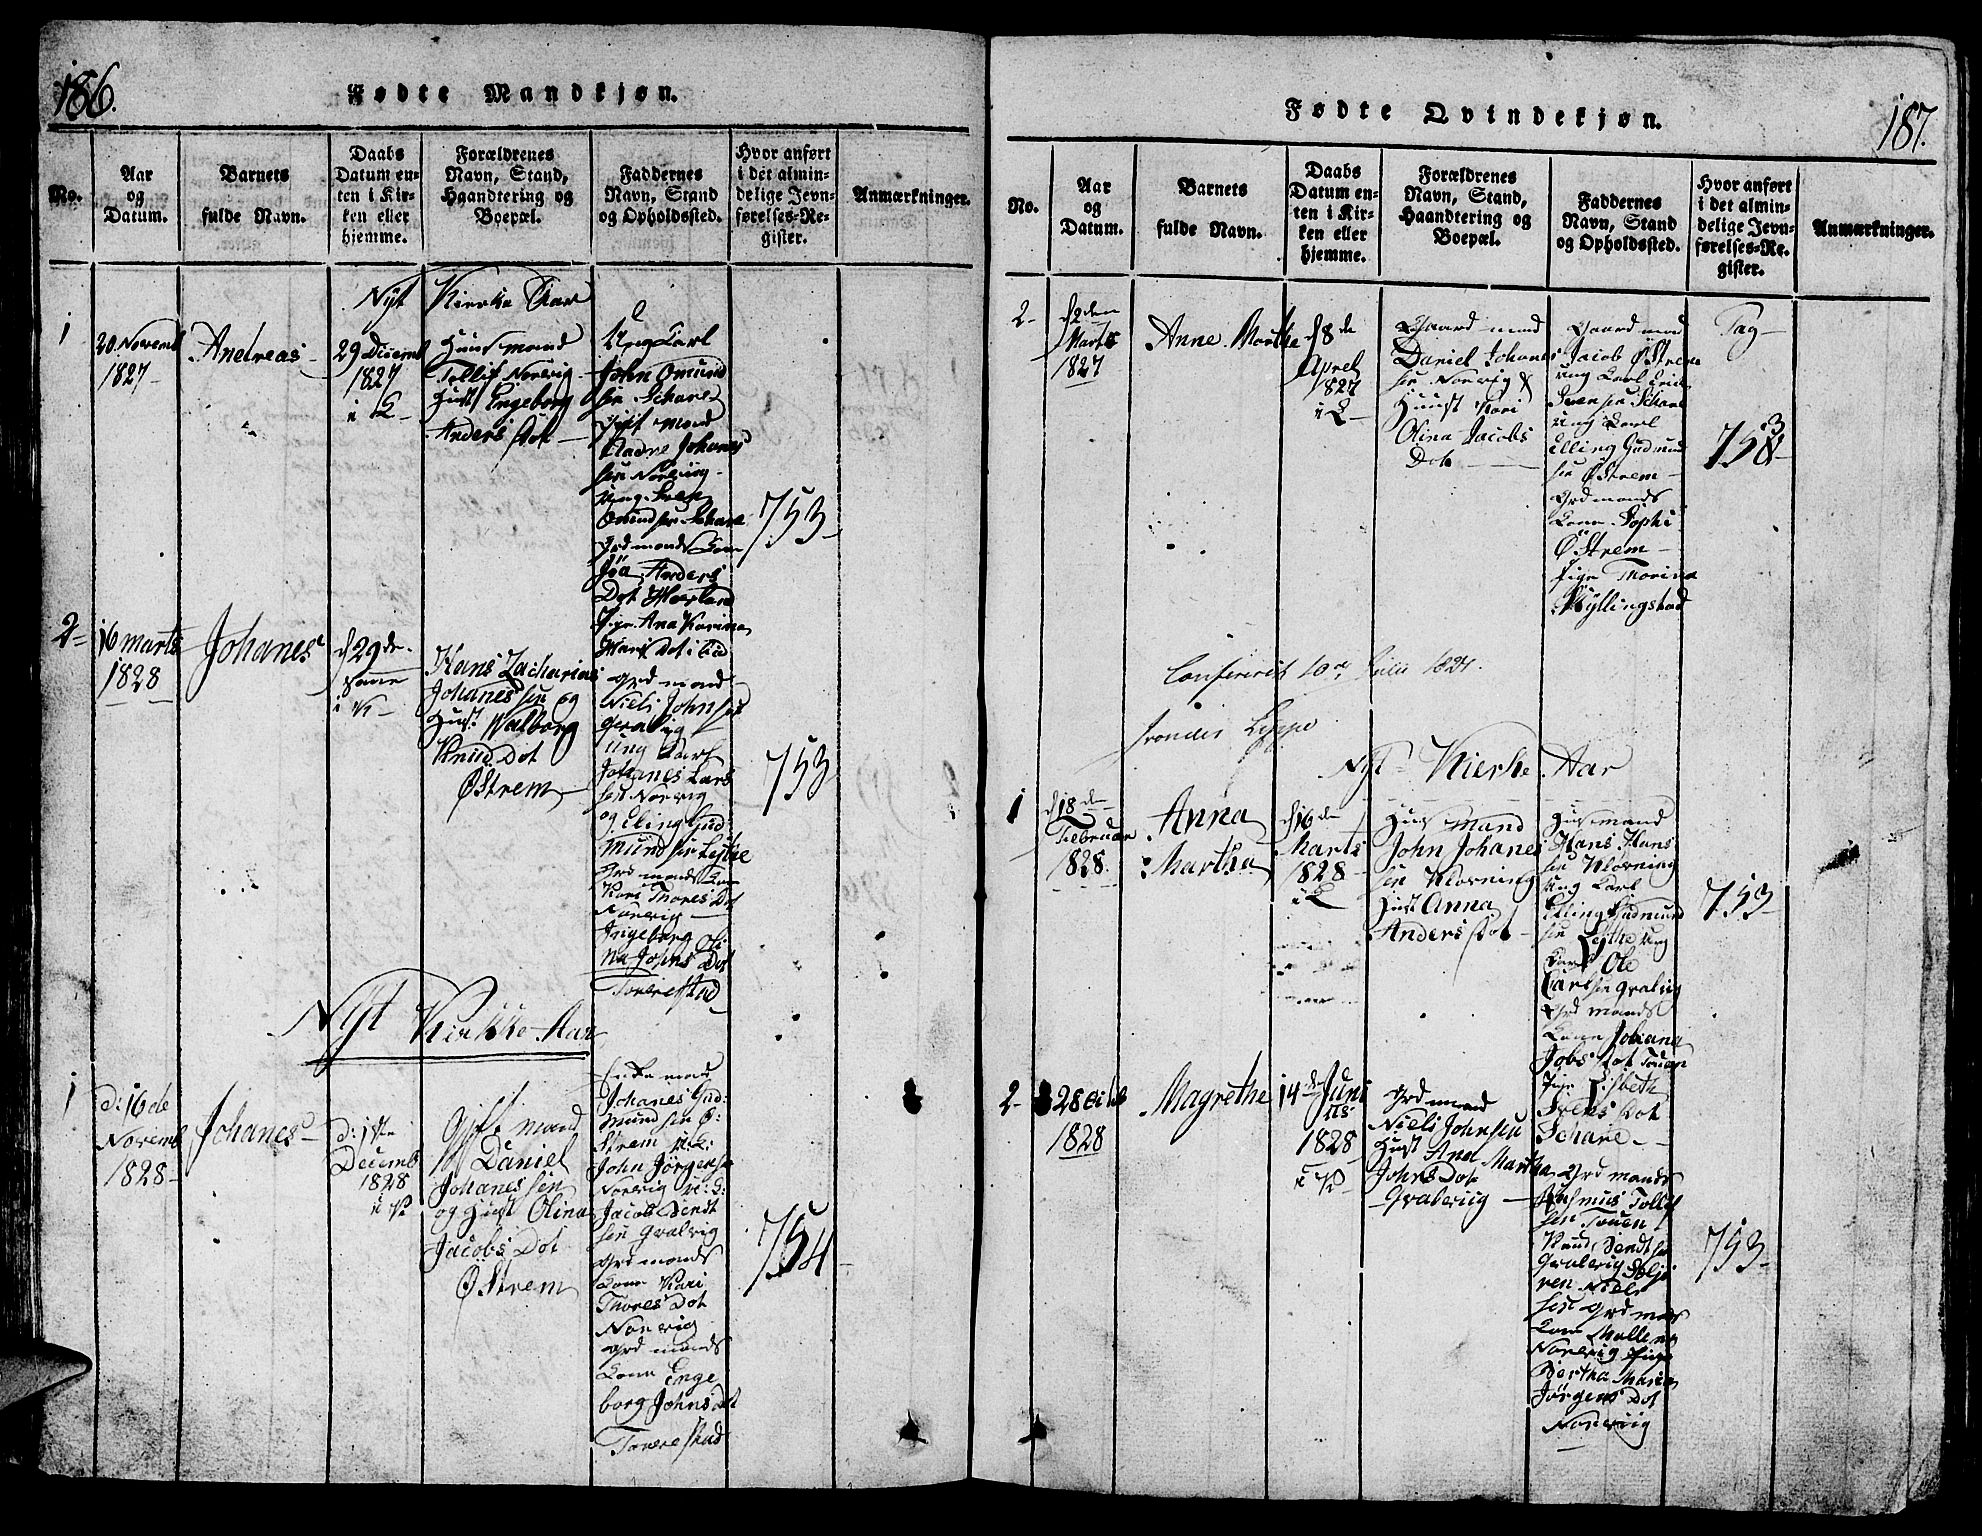 186.
Fødte Mandkjøn.
No.
Aar
og
Datum.
Barnets
fulde Navn.
Daabs
Datum en-
ten i Kir-
ken eller
hjemme.
Forældrenes
Navn, Stand,
Haandtering og
Boepæl.
Faddernes
Navn, Stand
og Opholdssted.
Hvor anført
i det almin-
delige Jevn-
førelses-Re-
gister.
Anmærkninger.
Nyt Kierke Aar
1
20 Novemb
1827
Andreas
29 Decemb
1827
i
Huusmand
Tollif Norvig
Hust Engeborg
Anders Dot
Ung Carl
John Omund
sen Schare
gift Mand
Johanes
sen Norvig
Ung Sven
Omundsen Schare
Grdmands Kone
Anders
Dot
Pige Ana Karina
Dot
753
2
16 Marts
1828
Johanes
d 29 de
i K
Hans Zacharias
Johanessen og
Hust. Walborg
Knud Dot
ØStrem
Grdmand
Niels Johnsen
Gralvig
Ung Carl
Johanes Lars
sen Norvig
og Eling Gud
mundsen
Grdmands Kone
Kari Thores Dot
Norvig
Ingeborg Oli
na Johns Dot
Torrestad
753
Nyt Kirkke-Aar
1
D: 16 de
Novemb
1828
Johanes
D: 1ste
Decemb
1828
i K
Gift mand
Daniel
Johanessen
og Hust Olina
Jacobs Dot
ØStrem
Enkemand
Johanes Gud
mundsen Ø
Strem
John Jørgensen
Norvig
Jacob Bendt
sen Gralvig
Grdmands
Kone Kari
Thores Dot
Norvig
Grdmands
Kone Enge
borg Johns Dot
Torrestad
754
187.
Fødte Qvindekjøn.
No.
Aar
og
Datum.
Barnets
fulde Navn.
Daabs
Datum en-
ten i Kir-
ken eller
hjemme.
Forældrenes
Navn, Stand,
Haandtering og
Boepæl.
Faddernes
Navn, Stand
og Opholdssted.
Hvor anført
i det almin-
delige Jevn-
førelses-Re-
gister.
Anmærkninger.
2
d 2 den
Marts
1827
Anne Marthe
d 8 de
Aprel
1827
i
Gaardmand
Daniel Johanes
sen Norvig &
Hust Kari
Olina Jacobs
Dot
Gaardmand
Jacob ØStrem
Ung Carl
Svensen Schare
Ung Carl
Elling Gudmund
sen ØStrem
Grdmands
Kone Sophi
ØStrem
Pige Thorina
Myllingstad
Pag
753
Confereret 10de 1827.
Nyt Kierke Aar
1
d 18 de
Februar
1828
Anna
Martha
d 16 de
Marts
1828
i
Husmand
John Johanes
sen Klovning
Hust Anna
Anders Dot
Husmand
Hans Hans
sen Klovning
Ung Carl
Elling Gudmund
sen Ung
Carl Ole
Carlsen Gralvig
Grdmands
Kone Johana
Jobs Dot Touen
Pige Lisbeth
Svens Dot
Schare
753
2
28
1828
Magrethe
14 de Juni
1828
i K
Grdmand
Niels Johnsen
Hust Ana Martha
Johns Dot
Gralvig
Grdmand
Rasmus Tollef
sen Touen
Knud Bendtsen
Gralvig
Niels
sen Grdmands
Kone Malle
Norvig Pige
Bertha Maria
Jørgens Dot
Norvig
753